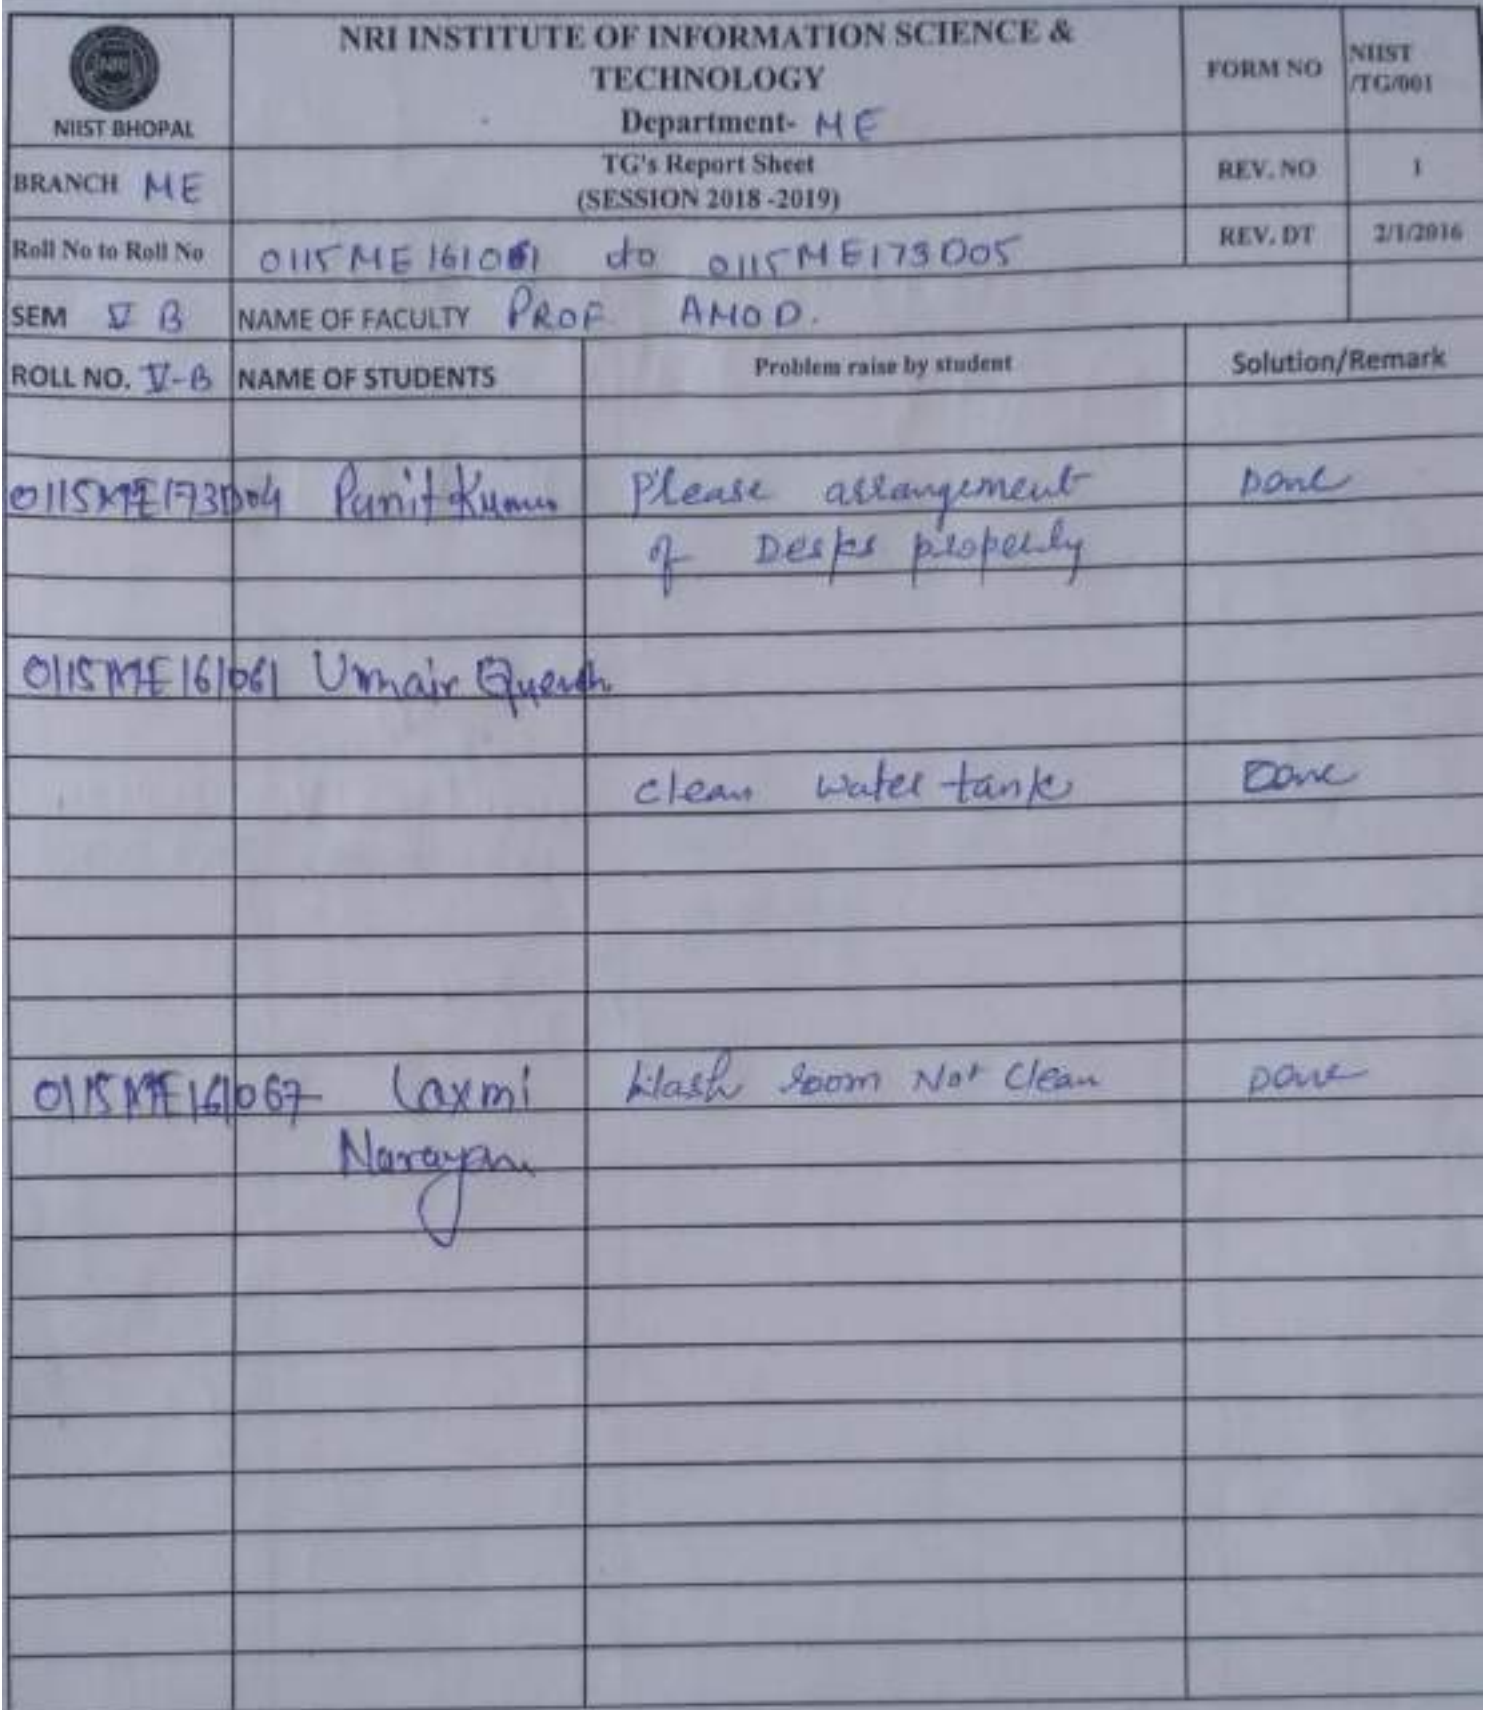 NRI INSTITUTE OF INFORMATION SCIENCE &
TECHNOLOGY
Department- ME
NIIST BHOPAL
FORM NO NIIST
/TG/001
BRANCH ME
TG's Report Sheet
(SESSION 2018 -2019)
REV. NO 1
Roll No to Roll No 0115ME161061 to 0115ME173D05
REV. DT 2/1/2016
SEM V B NAME OF FACULTY PROF. AMOD.
ROLL NO. V-B NAME OF STUDENTS Problem raise by student Solution/Remark
0115ME173D04 Punit Kumar Please arrangement Done
of Desks properly
0115ME161061 Umair
clean water tank Done
0115ME161067 Laxmi Wash room Not Clean Done
Narayan